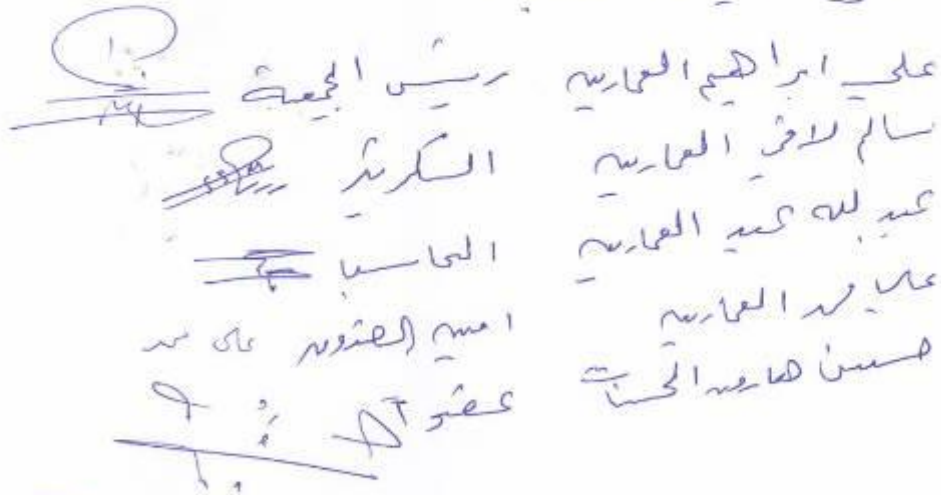 علي ابراهيم العمارين رئيس الجمعية
سالم لافي العمارين السكرتير
عبد لله عيد العمارين المحاسب
علي محمد العمارين امين الصندوق علي محمد
حسين هارون الحسنات عضو